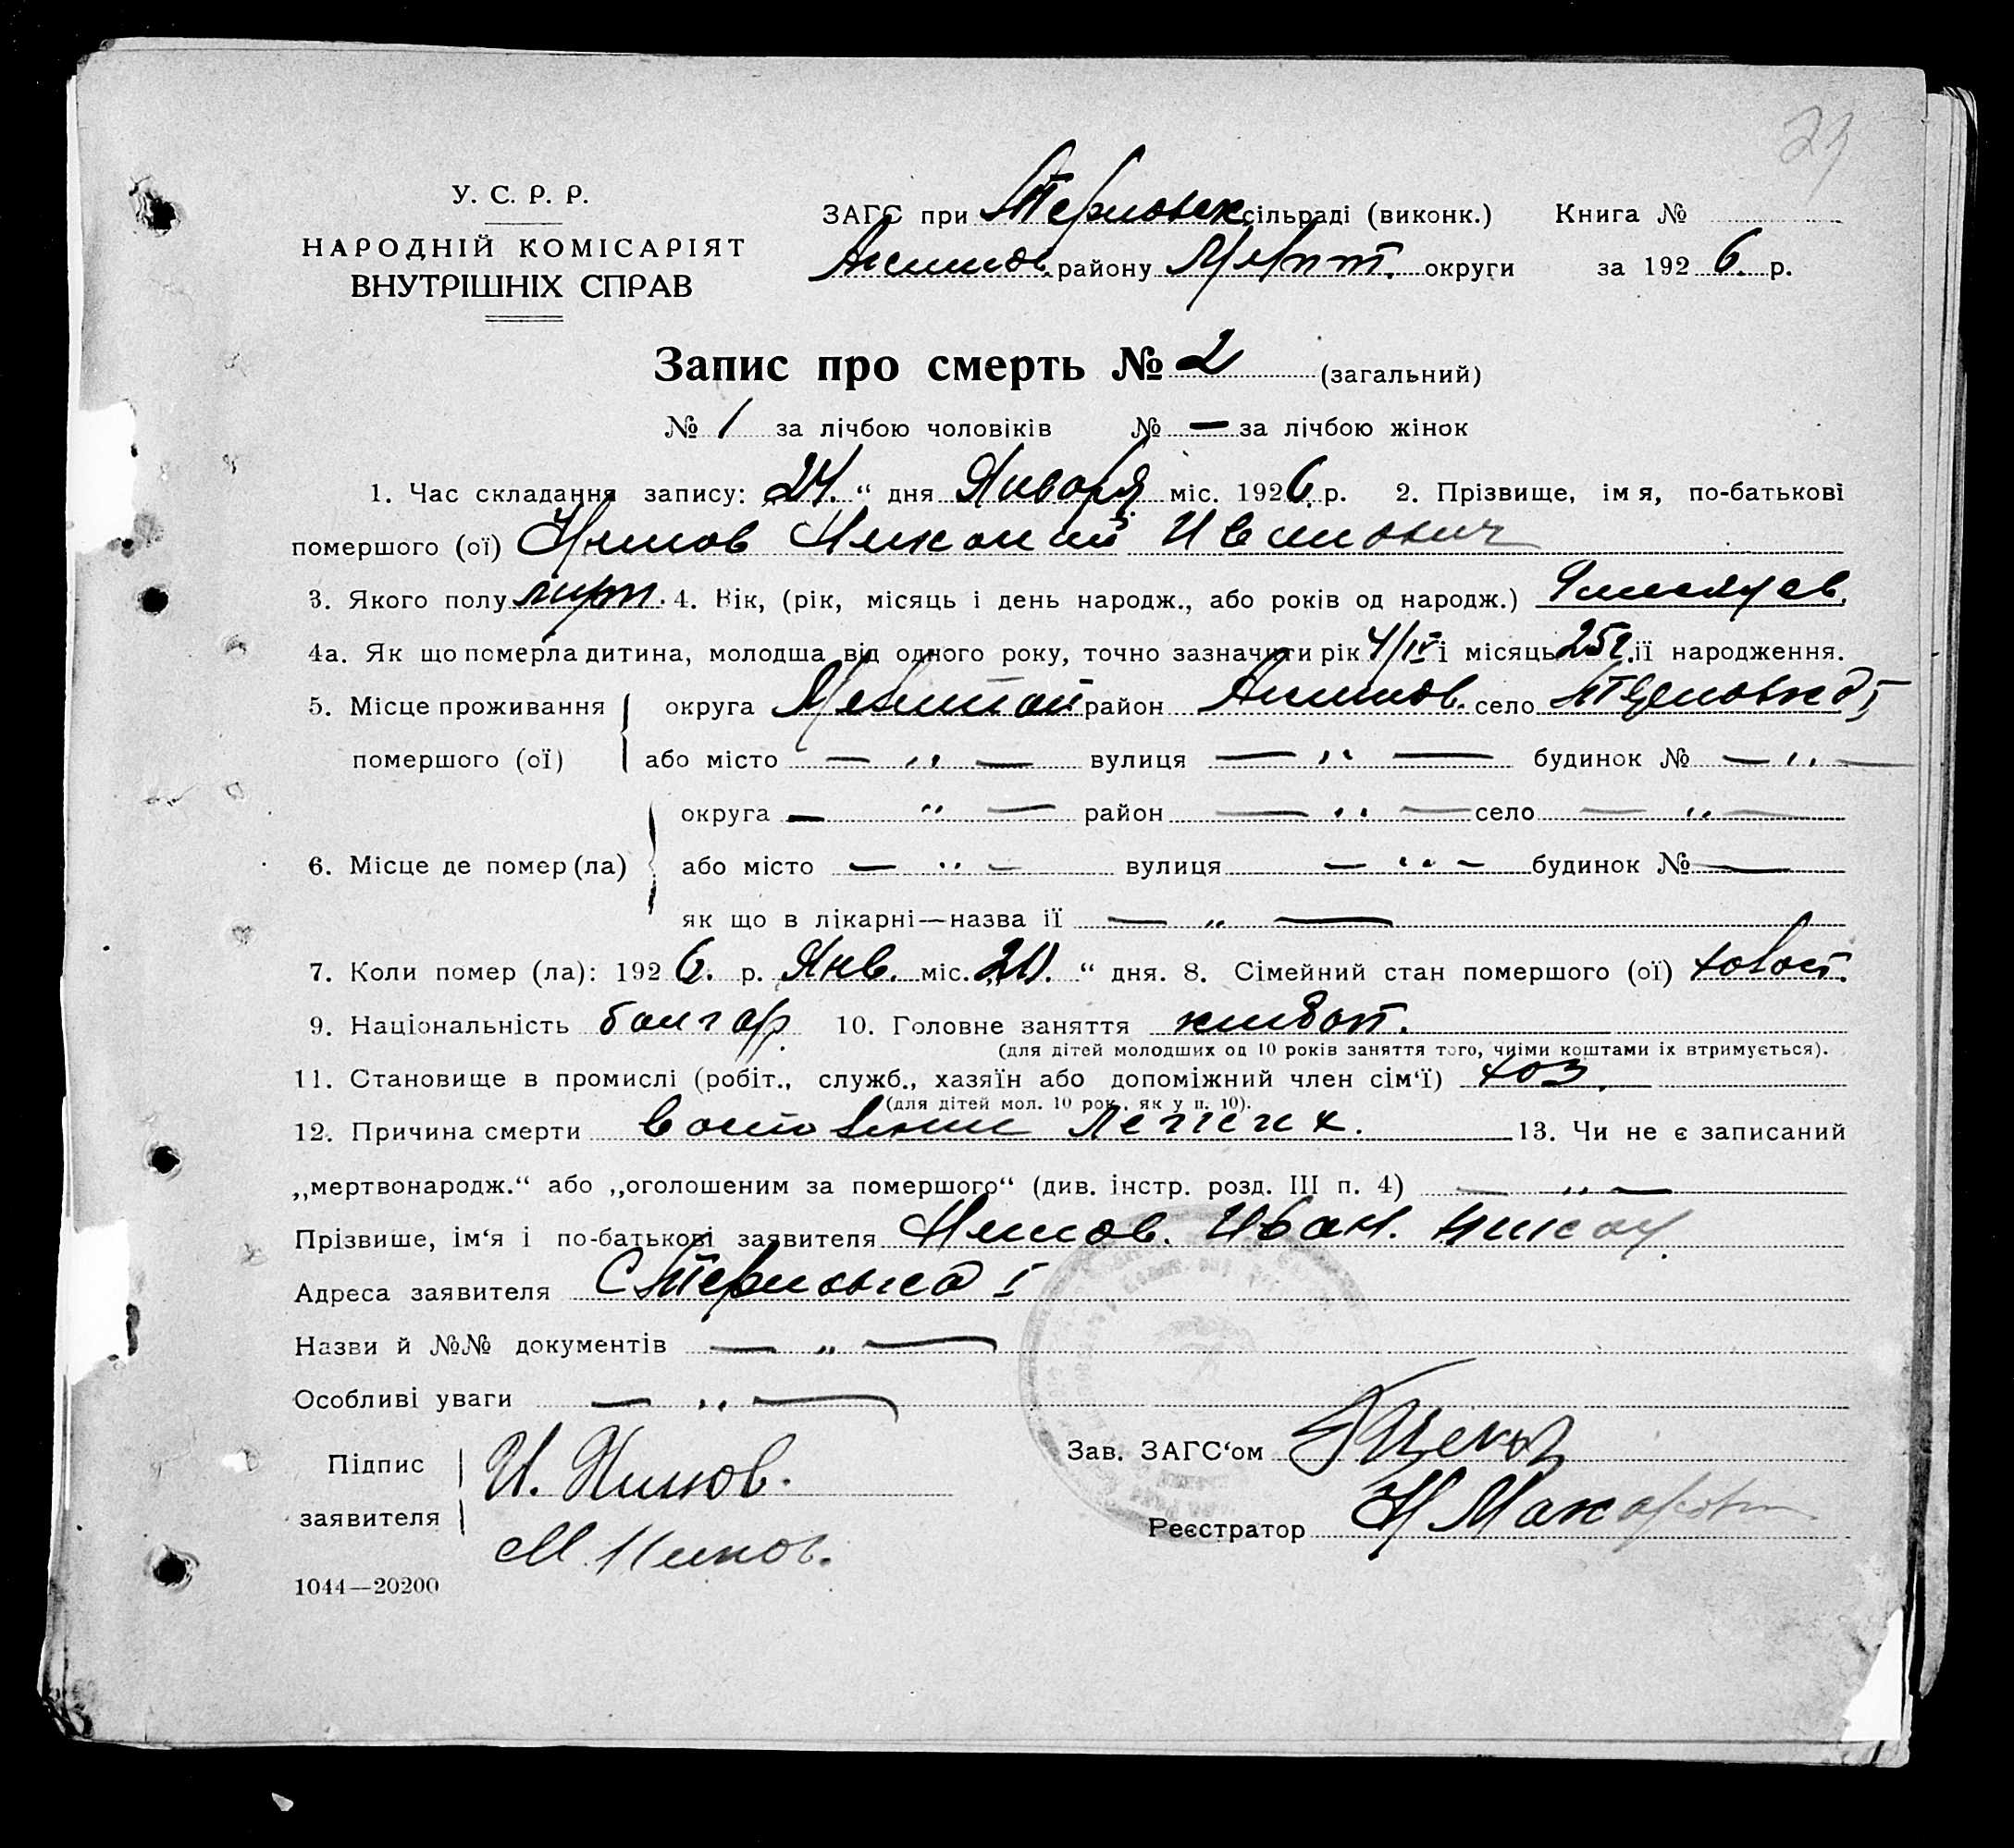 29
У. С. Р. Р.
НАРОДНІЙ КОМІСАРІЯТ
ВНУТРІШНІХ СПРАВ
ЗАГС при Терновск сільраді (виконк.) Книга №
Акимов. району Мелит. округи за 192 6. р.
Запис про смерть № 2 (загальний)
№ 1 за лічбою чоловіків № — за лічбою жінок
1. Час складання запису: „24.“ дня Января міс. 1926 р. 2. Прізвище, імя, по-батькові
помершого (ої) Нинов Николай Иванович
3. Якого полу 4. Вік, (рік, місяць і день народж., або років од народж.) 9 месяцев.
4а. Як що померла дитина, молодша від одного року, точно зазначити рік 4/IV і місяць 25г. її народження.
5. Місце проживання округа Мелитоп район Акимов. село Терновка I
помершого (ої) або місто — „ — вулиця — „ — будинок № — „ —
округа — „ — район — „ — село — „ —
6. Місце де помер (ла) або місто — „ — вулиця — „ — будинок № —
як що в лікарні—назва її — „ —
7. Коли помер (ла): 192 6. р. Янв. міс. „20.“ дня. 8. Сімейний стан помершого (ої) холост.
9. Національність болгар. 10. Головне заняття хлібоп.
(для дітей молодших од 10 років заняття того, чиїми коштами іх втримується).
11. Становище в промислі (робіт., служб., хазяїн або допоміжний член сім‘ї) хоз.
(для дітей мол. 10 рок., як у п. 10).
12. Причина смерти воспаление легких. 13. Чи не є записаний
„мертвонародж.“ або „оголошеним за помершого“ (див. інстр. розд. III п. 4) — „ —
Прізвише, ім‘я і по-батькові заявителя Нинов. Иван. Никол.
Адреса заявителя С Терновка I
Назви й №№ документів — „ —
Особливі уваги — „ —
Підпис И. Нинов. Зав. ЗАГС‘ом
заявителя М. Нинов. Реєстратор
1044—20200